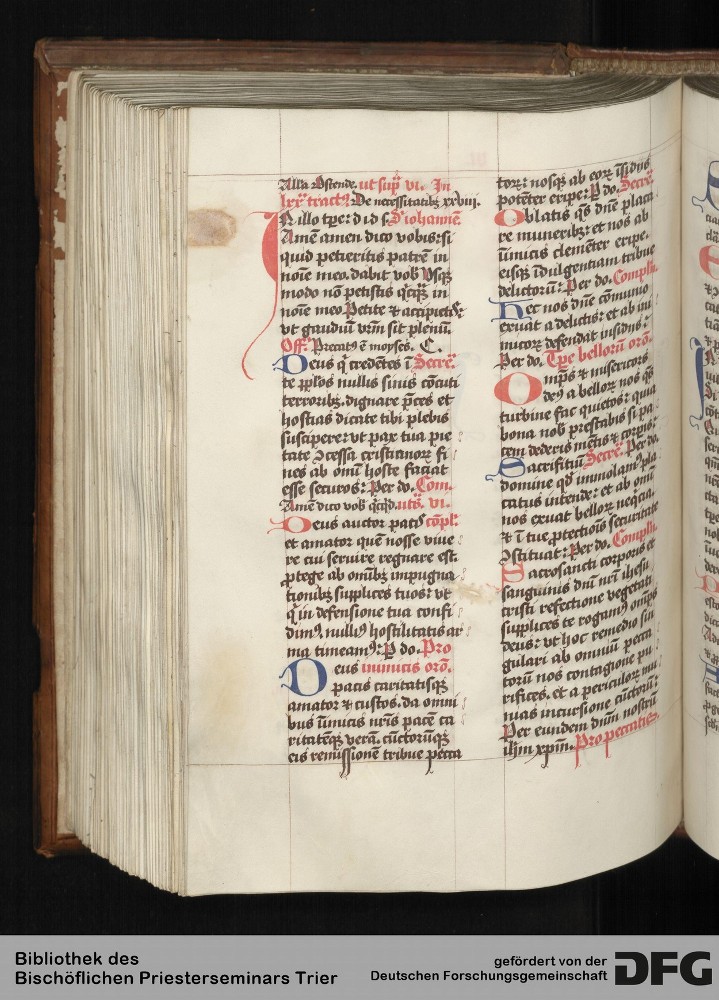 Alla Ostende. ut supͣ vi. In
lxxͣ tractꝰ. De necessitatibꝫ xxviii.
In illo tp̄e: d id s. S iohannē
Amē amen dico vobis: si
quid petieritis patrē in
noīe meo. dabit vob̄ Vsqꝫ
modo nō petistis qͥcqͣꝫ in
noīe meo Petite ⁊ accipietis:
vt gaudiū vrm̄ sit plenū.
Off. Precatꝰ ē moyses. C.
Deus qͥ credētes ī Secre.
te pplōs nullis sinis cōcuti
terroribꝫ. dignare p̄ces et
hostias dicate tibi plebis
suscipere: vt pax tua pie
tate ↄcessa cristianoꝝ fi
nes ab omī hoste faciat
esse securos: Per do. Com.
Amē dico vob̄ qͥcqͥd. ut sͣ. vi.
Deus auctor pacis cōpl.
et amator quē nosse viue
re cui seruire regnare est.
ꝓtege ab om̄ibꝫ impugna
tionibꝫ supplices tuos: vt
qͥ in defensione tua confi
dimꝰ. nulliꝰ hostilitatis ar
ma timeamꝰ: P̲ do. Pro
Deus inimicis orō.
pacis caritatisqꝫ
amator ⁊ custos. da omni
bus īimicis nr̄is pacē ca
ritatēqꝫ verā. cūctorūqꝫ
eis remissionē tribue pecca
torꝝ: nosqꝫ ab eoꝝ īsidijs
potēter eripe: P̲ do. Secre.
Oblatis qs̄ dn̄e placa
re muneribꝫ: et nos ab
īimicis clemēter eripe.
eisqꝫ īdulgentiam tribue
delictorū: Per do. Compln̄.
Hec nos dn̄e cōmunio
exuat a delictis: et ab ini
micoꝝ defendat insidijs:
Per do. Tp̄e bellorū orō.
Omp̄s ⁊ misericors
deꝰ a belloꝝ nos qs̄
turbine fac quietos: quia
bona nob̄ prestabis si pa
cem dederis mētis ⁊ corpis:
Sacrifitiū Secre. Per do.
domine qd̄ immolamꝰ pla
catus intende: et ab omī
nos exuat belloꝝ neqͥcia.
⁊ ī tue ꝓtectiōis securitate
ↄstituat: Per do. Compln̄.
Sacrosancti corporis et
sanguinis dn̄i nr̄i ihesu
cristi refectione vegetati
supplices te rogamꝰ omp̄s
deus: vt hoc remedio sin
gulari ab omniū pecca
torū nos contagione pu
rifices. et a periculoꝝ mu
nias incursione cūctorū:
Per eundem dn̄m nostrū
ihm̄ xpm̄. Pro peccatis
Bibliothek des
Bischöflichen Priesterseminars Trier
gefördert von der
Deutschen Forschungsgemeinschaft
DFG